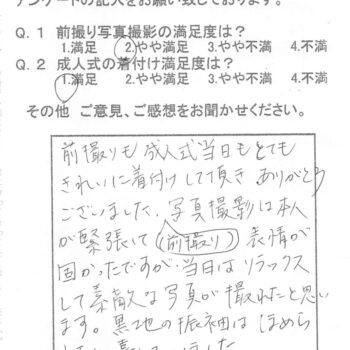 アンケートの記入をお願い致しております。
Q.1 前撮り写真撮影の満足度は?
1.満足 2.やや満足 3.やや不満 4.不満
Q.2 成人式の着付け満足度は?
1.満足 2.やや満足 3.やや不満 4.不満
その他 ご意見、ご感想をお聞かせください。
前撮りも成人式当日もとても
きれいに着付けして頂き ありがとう
ございました。写真撮影は本人
が緊張して(前撮り)表情が
固かったですが、当日はリラックス
して素敵な写真が撮れたと思い
ます。黒地の振袖はほめら